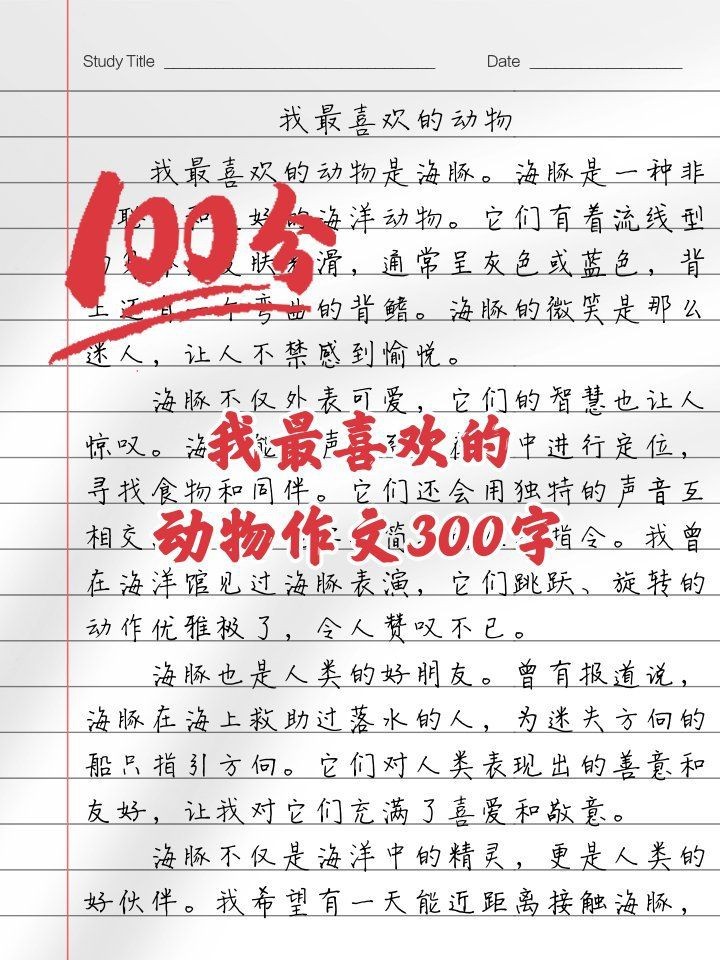 Study Title
Date
我最喜欢的动物
我最喜欢的动物是海豚。海豚是一种非
海洋动物。它们有着流线型
滑，通常呈灰色或蓝色，背
上还有一个弯曲的背鳍。海豚的微笑是那么
迷人，让人不禁感到愉悦。
100分
海豚不仅外表可爱，它们的智慧也让人
惊叹。海 中进行定位，
我最喜欢的
寻找食物和同伴。它们还会用独特的声音互
相交 简 指令。我曾
动物作文300字
在海洋馆见过海豚表演，它们跳跃、旋转的
动作优雅极了，令人赞叹不已。
海豚也是人类的好朋友。曾有报道说，
海豚在海上救助过落水的人，为迷失方向的
船只指引方向。它们对人类表现出的善意和
友好，让我对它们充满了喜爱和敬意。
海豚不仅是海洋中的精灵，更是人类的
好伙伴。我希望有一天能近距离接触海豚，